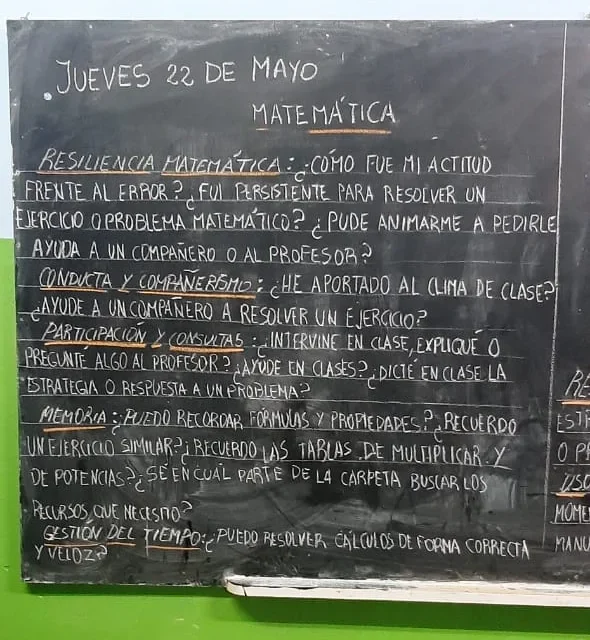 JUEVES 22 DE MAYO
MATEMÁTICA
RESILIENCIA MATEMÁTICA: ¿CÓMO FUE MI ACTITUD
FRENTE AL ERROR? ¿FUI PERSISTENTE PARA RESOLVER UN
EJERCICIO O PROBLEMA MATEMÁTICO? ¿PUDE ANIMARME A PEDIRLE
AYUDA A UN COMPAÑERO O AL PROFESOR?
CONDUCTA Y COMPAÑERISMO: ¿HE APORTADO AL CLIMA DE CLASE?
¿AYUDÉ A UN COMPAÑERO A RESOLVER UN EJERCICIO?
PARTICIPACIÓN Y CONSULTAS: ¿INTERVINE EN CLASE, EXPLIQUÉ O
PREGUNTÉ ALGO AL PROFESOR? ¿AYUDÉ EN CLASES? ¿DICTÉ EN CLASE LA
ESTRATEGIA O RESPUESTA A UN PROBLEMA?
MEMORIA: ¿PUEDO RECORDAR FÓRMULAS Y PROPIEDADES? ¿RECUERDO
UN EJERCICIO SIMILAR? ¿RECUERDO LAS TABLAS DE MULTIPLICAR Y
DE POTENCIAS? ¿SÉ EN CUÁL PARTE DE LA CARPETA BUSCAR LOS
RECURSOS QUE NECESITO?
GESTIÓN DEL TIEMPO: ¿PUEDO RESOLVER CÁLCULOS DE FORMA CORRECTA
Y VELOZ?
RE
ESTR
O P
USO
MOME
MANU